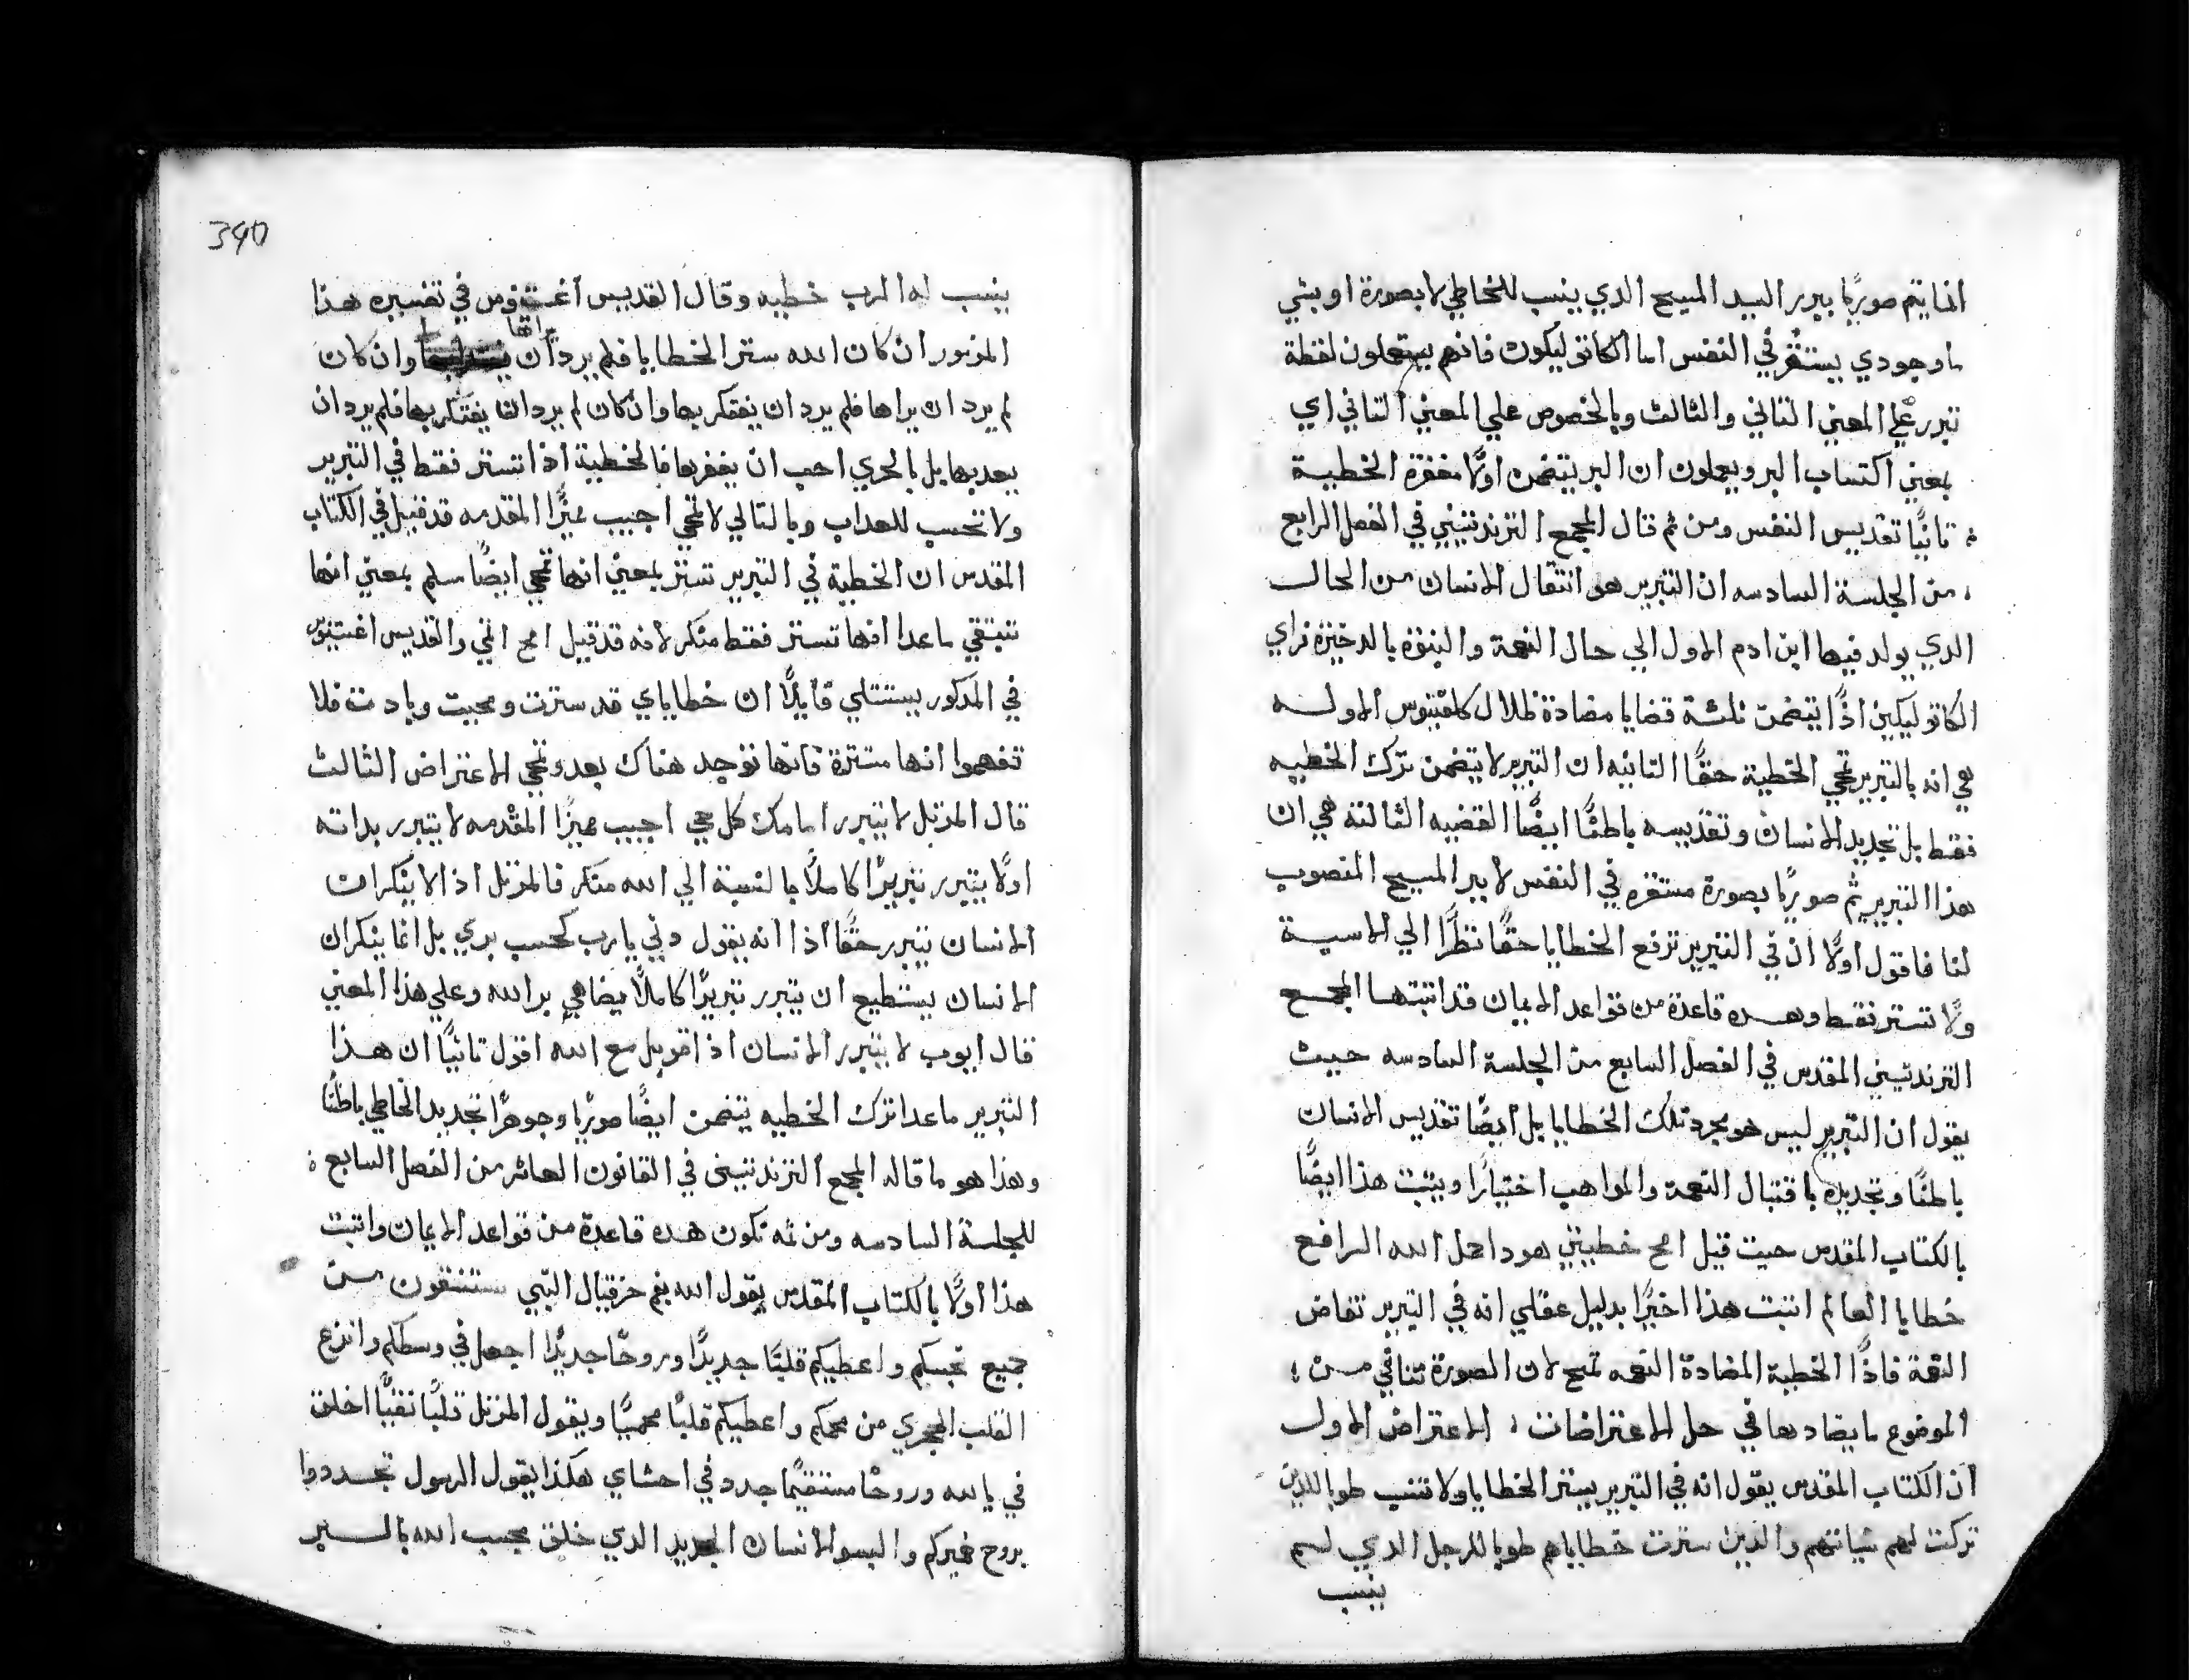 انما يتم صوريًا ببرر السيد المسيح الدي ينسب للخاطي لا بصورة او بشي
ما وجودي يستقر في النفس اما الكاتوليكون فانهم يستعملون لفظة
تبرر علي المعني التاني والثالث وبالخصوص علي المعني التاني اي
بمعني اكتساب البر ويعلمون ان البر يتضمن اولًا مغفرة الخطية
تانيًا تقديس النفس ومن ثم قال المجمع التريدنتيني في الفصل الرابع
من الجلسة السادسه ان التبرير هو انتقال الانسان من الحال
الدي يولد فيها ابن ادم الاول الي حال النعمة والبنوة بالدخيرة فراي
الكاتوليكين ادًا يتضمن ثلثة قضايا مضادة لظلال كلفينوس الاوله
هي انه بالتبرير تمحي الخطية حقًا التانيه ان التبرير لا يتضمن ترك الخطيه
فقط بل تجديد الانسان وتقديسه باطنًا ايضًا القضيه الثالثة هي ان
هذا التبرير يتم صوريًا بصورة مستقره في النفس لا ببر المسيح المنصوب
لنا فاقول اولًا ان في التبرير ترفع الخطايا حقًا نظرًا الي الاسية
ولا تستتر فقط وهده قاعدة من قواعد الايمان قد اتبتها المجمع
التريدنتيني المقدس في الفصل السابع من الجلسة السادسه حيث
يقول ان التبرير ليس هو مجرد تلك الخطايا بل ايضًا تقديس الانسان
باطنًا وتجديده باقتبال النعمة والمواهب اختيارًا ويتبت هذا ايضًا
بالكتاب المقدس حيت قيل امح خطيتي هودا حمل الله الرافع
خطايا العالم اتبت هذا اخيرًا بدليل عقلي انه في التبرير تفاض
النعمة فاذًا الخطية المضادة النعمه تمح لان الصورة تنافي من
الموضوع ما يضادها في حل الاعتراضات الاعتراض الاول
ان الكتاب المقدس يقول انه في التبرير يستر الخطايا ولا تنسب طوبا للدين
تركت لهم سياتهم والدين سترت خطاياهم طوبا للرجل الدي لم
ينسب
390
ينسب له الرب خطيه وقال القديس اغسطينوس في تفسيره هذا
المزمور ان كان الله ستر الخطايا فلم يرد ان يراها وان كان
لم يرد ان يراها فلم يرد ان يفتكر بها وان كان لم يرد ان يفتكر بها فلم يرد ان
يعدبها بل بالحري احب ان يغفرها فالخطية اذا تستتر فقط في التبرير
ولا تحسب للعداب وبالتالي لا تمحي اجيب مميزًا المقدمه قد قيل في الكتاب
المقدس ان الخطية في التبرير تستتر بمعني انها تمحي ايضًا سلم بمعني انها
تتبقي ما عدا انها تستتر فقط منكر لانه قد قيل امح اتمي والقديس اغسطينوس
في المدكور يستتلي قايلًا ان خطاياي قد سترت ومحيت وبادت فلا
تفهموا انها مستترة فانها توجد هناك بعد وتمحي الاعتراض الثالث
قال المرتل لا يتبرر امامك كل حي اجيب مميزًا المقدمه لا يتبرر بداته
اولًا يتبرر تبريرًا كاملًا بالنسبة الي الله منكر فالمرتل اذ الا ينكر ان
الانسان يتبرر حقًا اذا انه يقول دني يا رب كحسب بري بل انما ينكر ان
الانسان يستطيع ان يتبرر تبريرًا كاملًا يضاهي بر الله وعلي هذا المعني
قال ايوب لا يتبرر الانسان اذا قوبل مع الله اقول تانيًا ان هذا
التبرير ماعدا ترك الخطيه يتضمن ايضًا صوريًا وجوهرًا تجديد الخاطي باطنًا
وهذا هو ما قاله المجمع التريدنتيني في القانون العاشر من الفصل السابع
للجلسة السادسه ومن ثمه تكون هده قاعدة من قواعد الايمان واتبت
هذا اولًا بالكتاب المقدس يقول الله بفم حزقيال النبي ستنقون من
جميع نجسكم واعطيكم قلبًا جديدًا وروحًا جديدًا اجعل في وسطكم وانزع
القلب الحجري من لحمكم واعطيكم قلبًا لحميًا ويقول المرتل قلبًا نقيًا اخلق
في يا الله وروحًا مستقيمًا جدد في احشاي هكذا يقول الرسول تجددوا
بروح ضميركم والبسوا الانسان الجديد الدي خلق بحسب الله بالبر